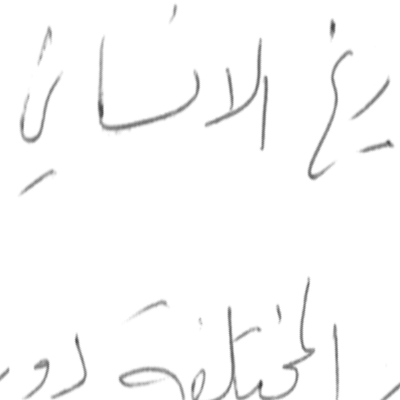 ريخ الانساني
المختلفة دور